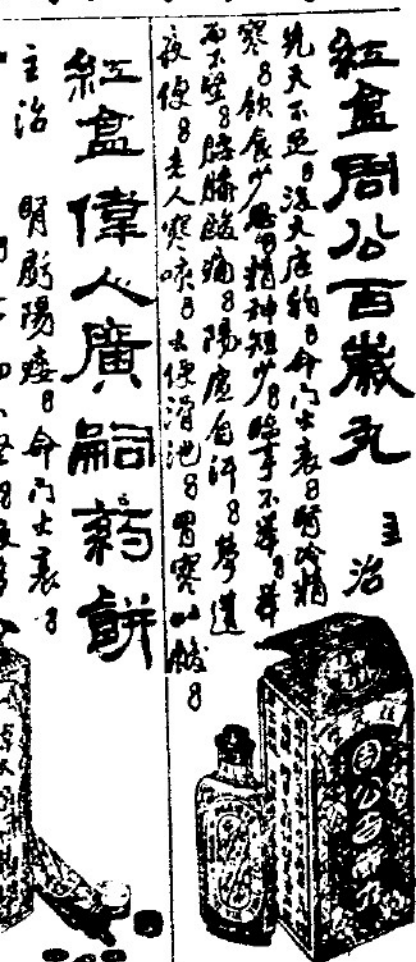 紅盒周公百歲丸
主治
先天不足。後天虛弱。命門火衰。腎冷精
寒。飲食少思。精神短少。臨事不舉。舉
而不堅。腰膝酸痛。陽虛自汗。夢遺
夜便。老人寒咳。大便滑泄。胃寒吐酸。
周公百歲丸
紅盒偉人廣嗣药餅
主治 腎虧陽痿。命門火衰。